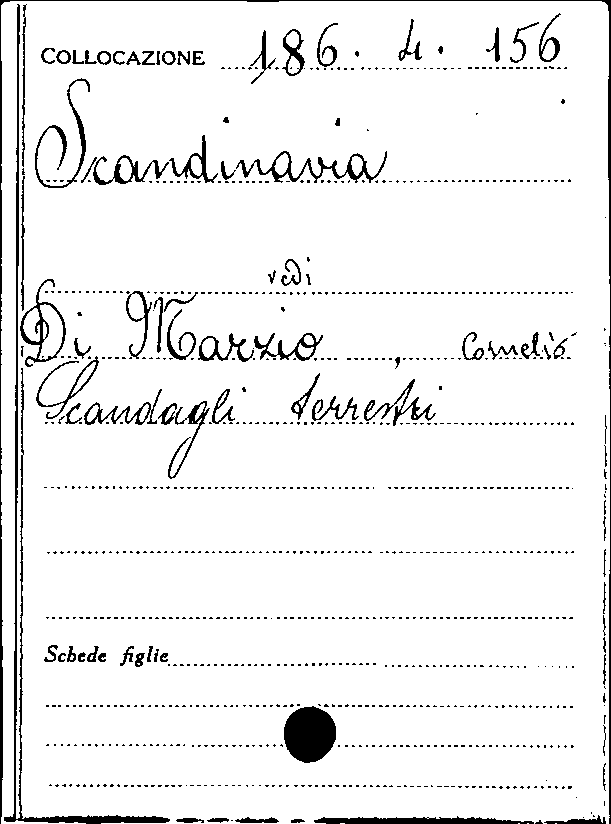 COLLOCAZIONE 186. 4. 156
Scandinavia
vedi
Di Marzio, Cornelio
Scandagli terrestri
Schede figlie